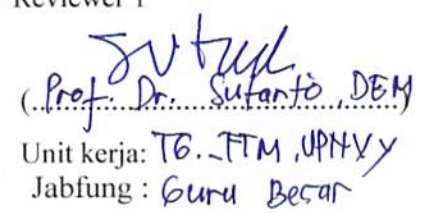 Reviewer 1
(Prof. Dr. Sutanto, DEM)
Unit kerja: TG. FTM, UPNVY
Jabfung : Guru Besar